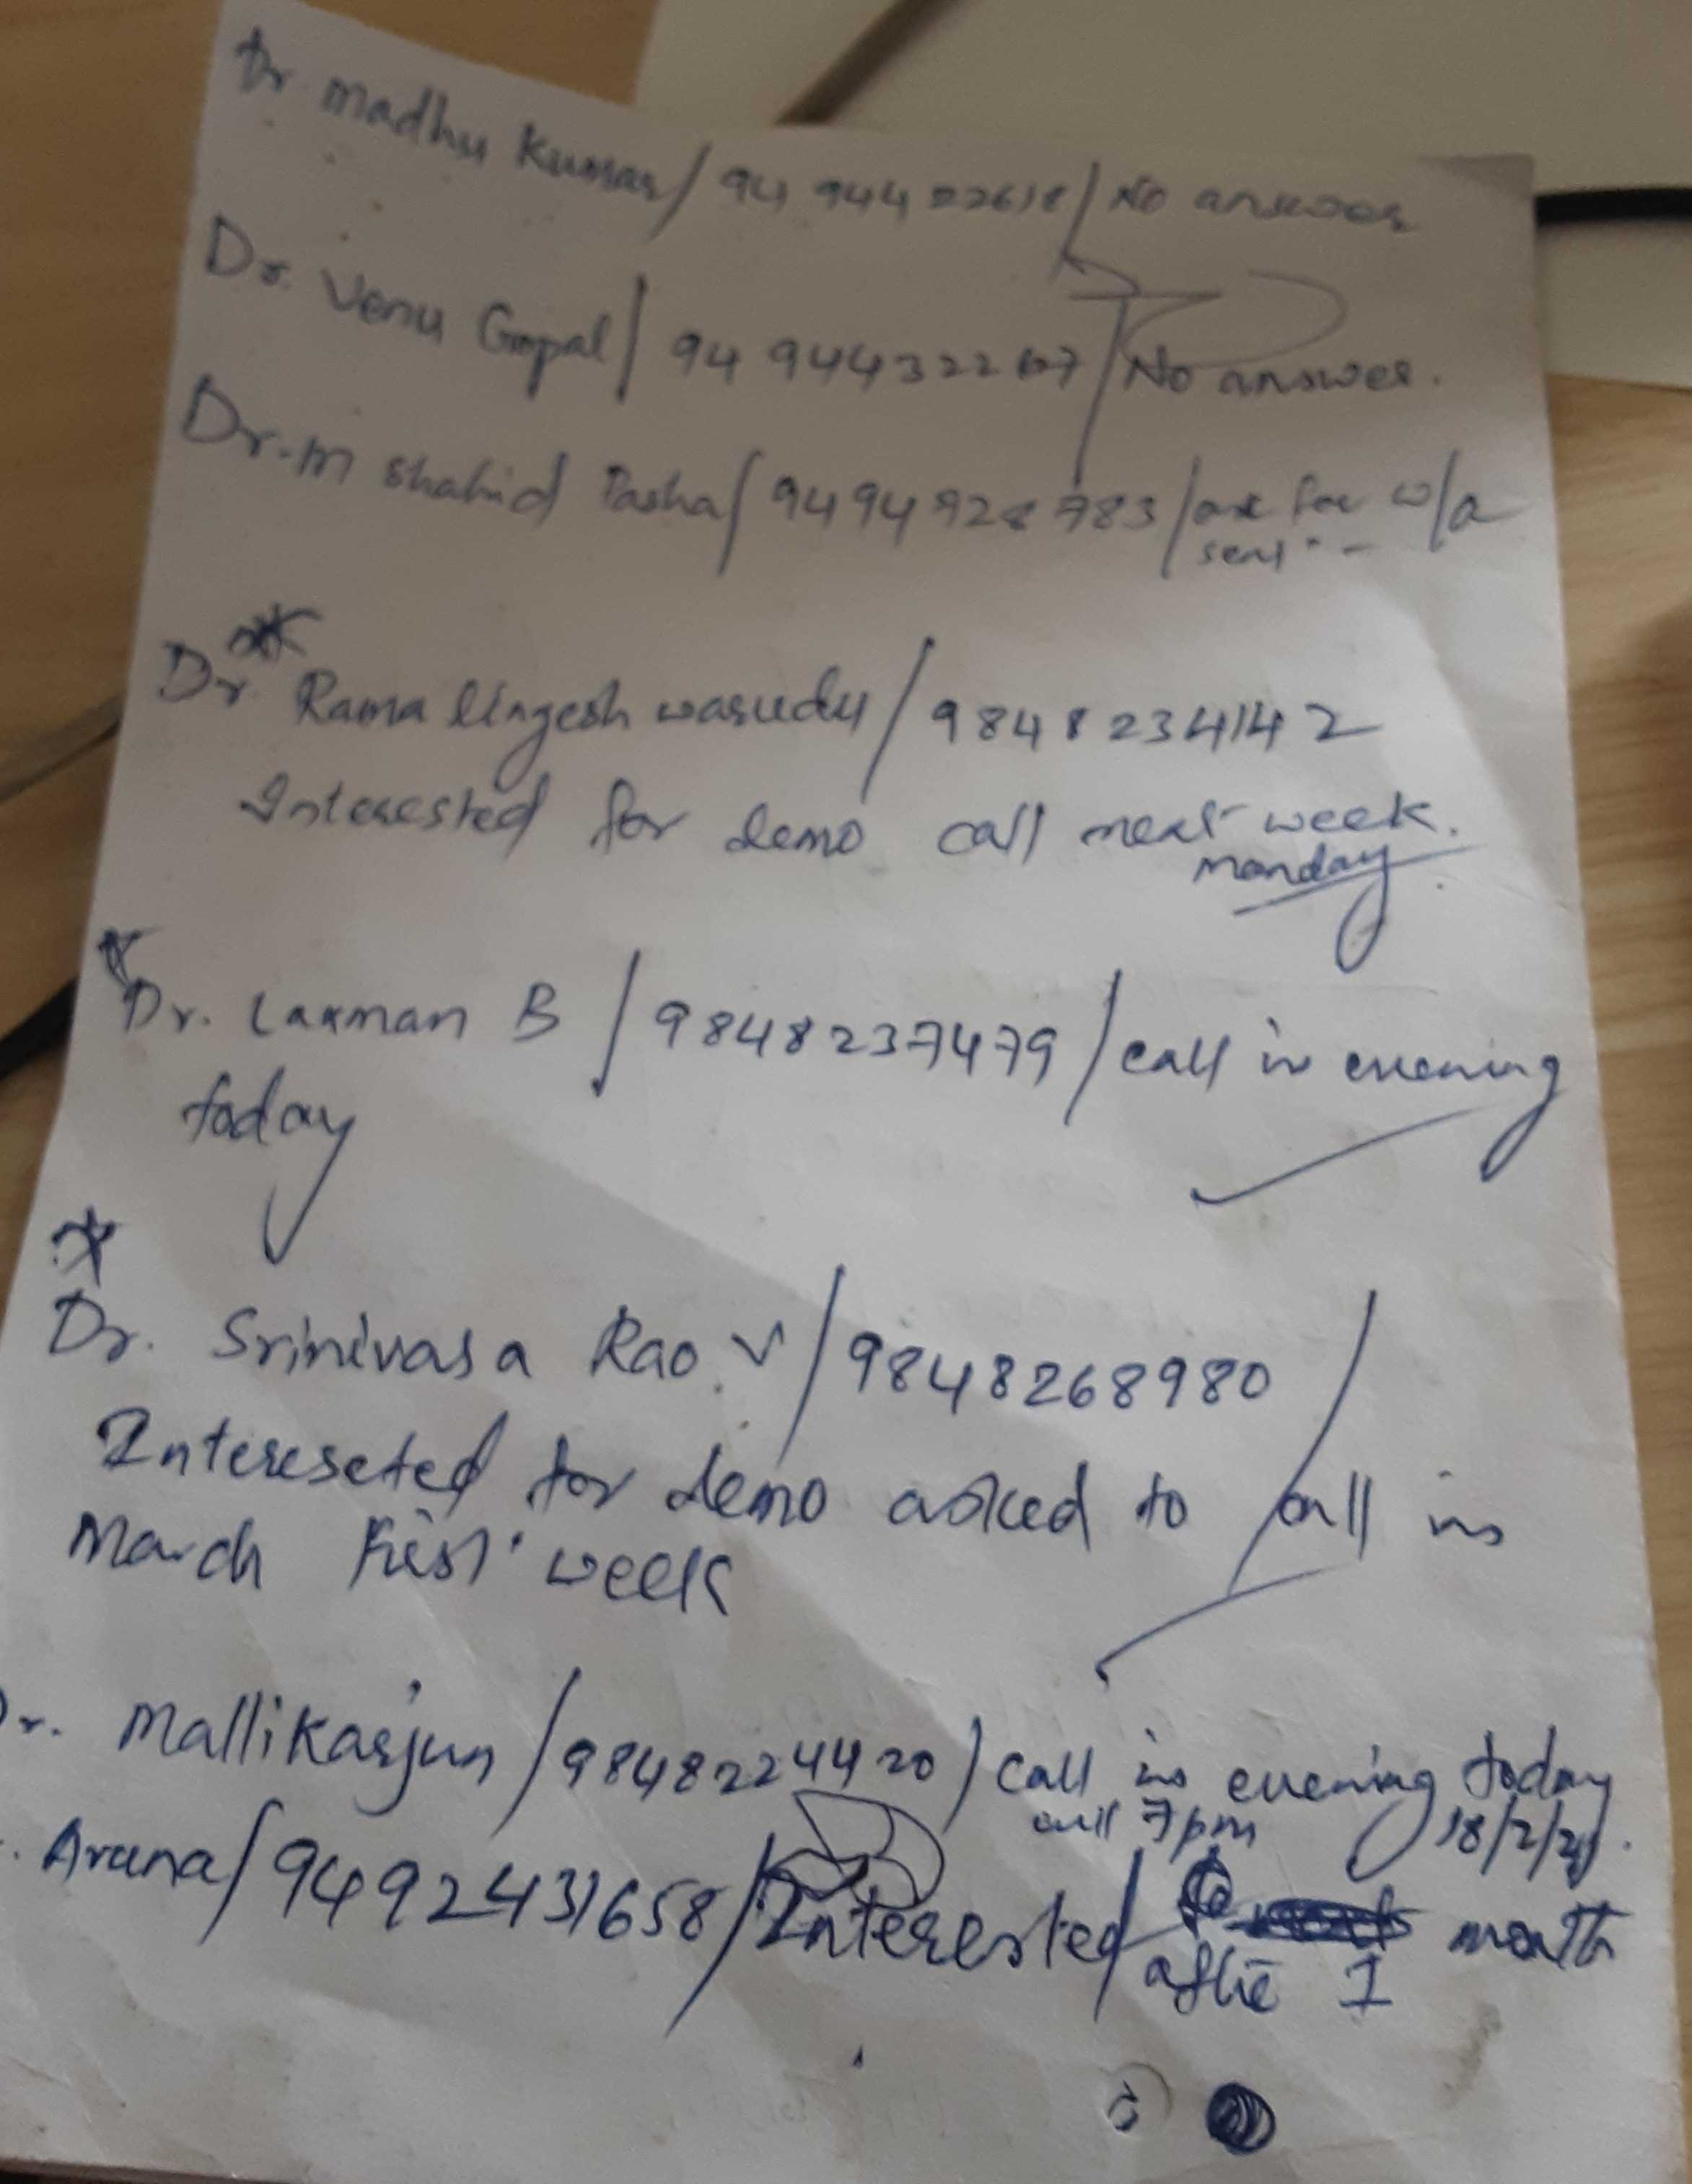 Dr. Madhu Kumar / 94 944 22618 / No answer
Dr. Venu Gopal / 94 94432267 / No answer.
Dr. M Shahid Pasha / 9494928783 / ask for w/a
sent " -
Dr Rama lingesh wasudu / 9848234142
Interested for demo call next week.
Monday
Dr. Laxman B / 9848237479 / call in evening
today
Dr. Srinivasa Rao. V / 9848268980 /
Intereseted for demo asked to call in
March First week
Dr. Mallikarjun / 9848224420 / call in evening today
call 7pm 18/2/
Aruna / 9492431658 / Interested / month
after 1